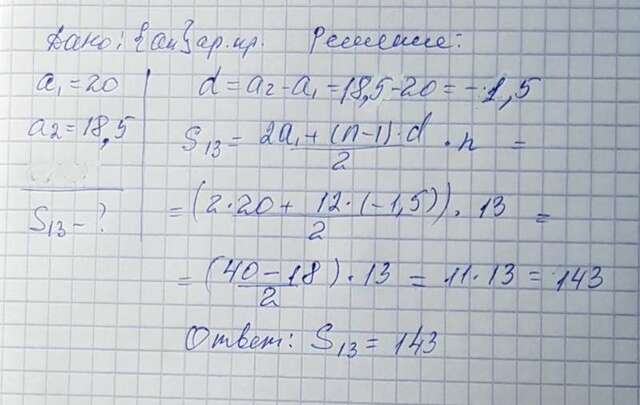 Дано: {an} ар.пр. Решение:
a₁=20 d=a₂-a₁=18,5-20=-1,5
a₂=18,5 S₁₃= (2a₁+(n-1)·d)/2 · n =
S₁₃-? =(2·20+12·(-1,5))/2 · 13 =
=(40-18)/2 · 13 = 11·13 = 143
Ответ: S₁₃=143